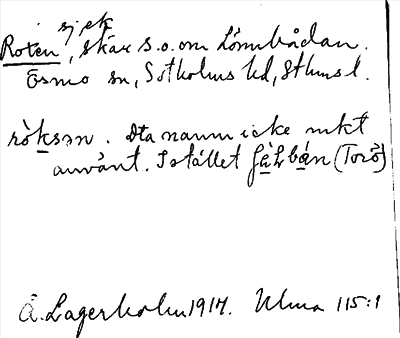 sjek
Roten, skär s.o. om Lönnbådan.
Ösmo sn, Sotholms hd, Sthms l.
rò̀ksən. Dta namn icke mkt
använt. I stället (Torö)
Å. Lagerholm 1917. Ulma 115:1